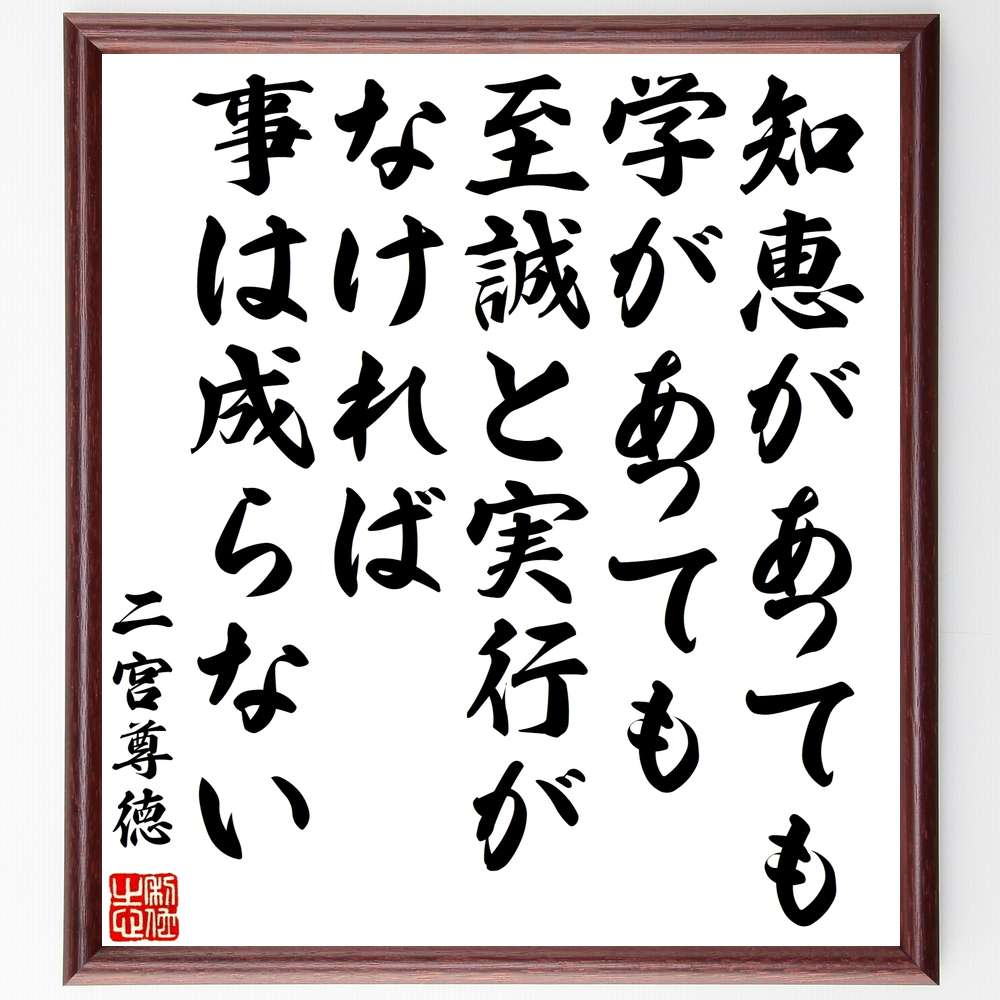 知恵があっても
学があっても
至誠と実行が
なければ
事は成らない
二宮尊徳